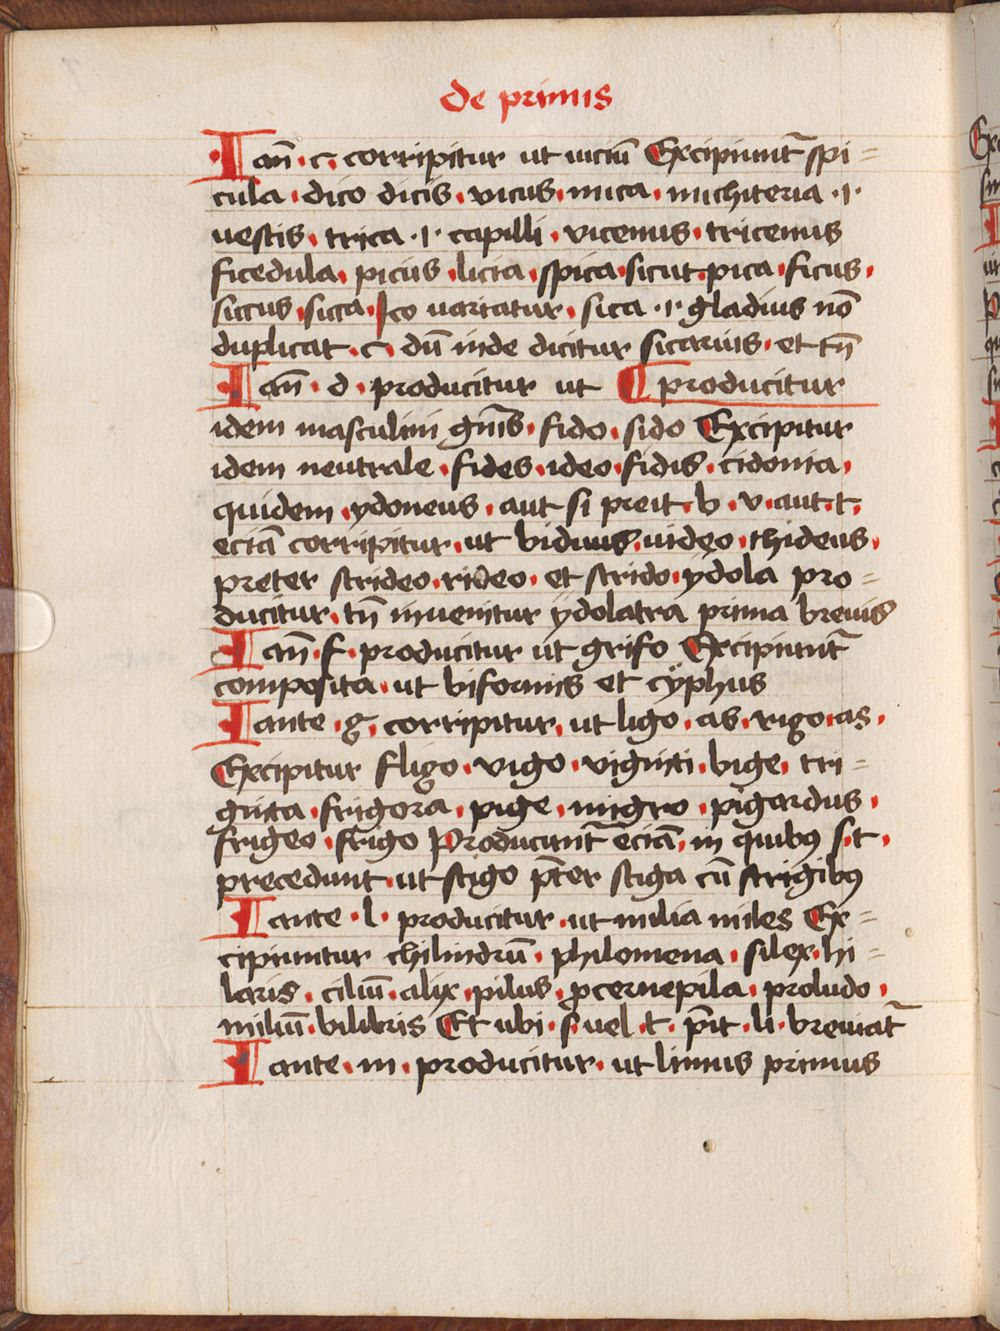 de primis
I an̄ · c · corripitur ut uiciū Excipiunt᷑ spi=
cula · dico dicis · vicus · mica · michiteria · ı ·
uestis · trica · ı · capilli · vicenus · tricenus
ficedula · picus · licia · spica · sicut · pica · ficus ·
siccus · sicca · Ico uariatur · sica · ı · gladius nō
duplicat · c · dū inde dicitur sicarius · et tn̄
I an̄ · d · producitur ut ¶ producitur
idem masculini gn̄is · fido · sido Excipitur
idem neutrale · fides · ideo · fidis · cidonia ·
quidem · ydoneus · aut si preit · b · v · aut · t ·
eciā corripitur · ut biduus · uideo · thideus ·
preter strideo · rideo · et strido · ydola pro=
ducitur · tn̄ inuenitur ydolatra prima breuis
I an̄ · f · producitur ut grifo Excipiunt᷑
composita · ut biformis et cÿphus
I ante · g · corripitur · ut ligo · as · rigo · as ·
Excipitur fligo · vigo · viginti · bige · tri=
ginta · frigora · pige · migro · pigardus ·
frigeo · frigo Producunt᷑ eciā · in quibus s · t ·
precedunt · ut stigo p̄ter stiga cū strigibus
I ante · l · producitur · ut milia miles Ex=
cipiuntur chilindrū · philomena · silex · hi=
laris · ciliū · alix · pilus · ꝓcernepila · proludo ·
miliū · bilibris Et ubi · s · uel · t · p̄it · li · breuiat᷑
I ante · m · producitur · ut limus primus